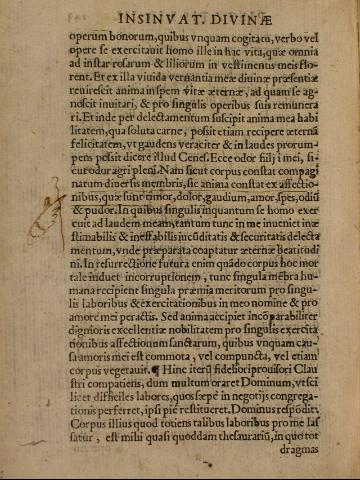 INSINVAT. DIVINÆ
operum bonorum, quibus vnquam cogitatu, verbo vel
opere se exercitauit homo ille in hac vita, quæ omnia
ad instar rosarum & liliorum in vestimentis meis flo-
rent. Et ex illa viuida vernantia meæ diuinæ præsentiæ
reuirescit anima in spem vitæ æternæ, ad quam se ag-
noscit inuitari, & pro singulis operibus suis remunera
ri. Et inde per delectamentum suscipit anima mea habi
litatem, qua soluta carne, possit etiam recipere æternā
felicitatem, vt gaudens veraciter & in laudes prorum-
pens possit dicere illud Genes. Ecce odor filij mei, si-
cut odor agri pleni. Nam sicut corpus constat compagi
narum diuersis membris, sic anima constat ex affectio-
nibus, quæ sunt timor, dolor, gaudium, amor, spes, odiū
& pudor. In quibus singulis inquantum se homo exer
cuit ad laudem meam, tantum tunc in me inuenict inæ
stimabilis & ineffabilis iucūditatis & securitatis delecta
mentum, vnde præparata coaptatur æternæ beatitudi
ni. In resurrectione futura enim quādo corpus hoc mor
tale induet incorruptionem, tunc singula mēbra hu-
mana recipient singula præmia meritorum pro singu-
lis laboribus & exercitationibus in meo nomine & pro
amore mei peractis. Sed anima accipiet incōparabiliter
dignioris excellentiæ nobilitatem pro singulis exercita
tionibus affectionum sanctarum, quibus vnquam cau-
sa amoris mei est commota, vel compuncta, vel etiam
corpus vegetauit. ¶ Hinc iterū fidelior prouisori Clau
stri compatiens, dum multum oraret Dominum, vt sci
licet difficiles labores, quos sæpe in negotijs congrega-
tionis perferret, ipsi piè restitueret. Dominus respōdit:
Corpus illius quod totiens talibus laboribus pro me las
satur, est mihi quasi quoddam thesaurariū, in quo tot
dragmas